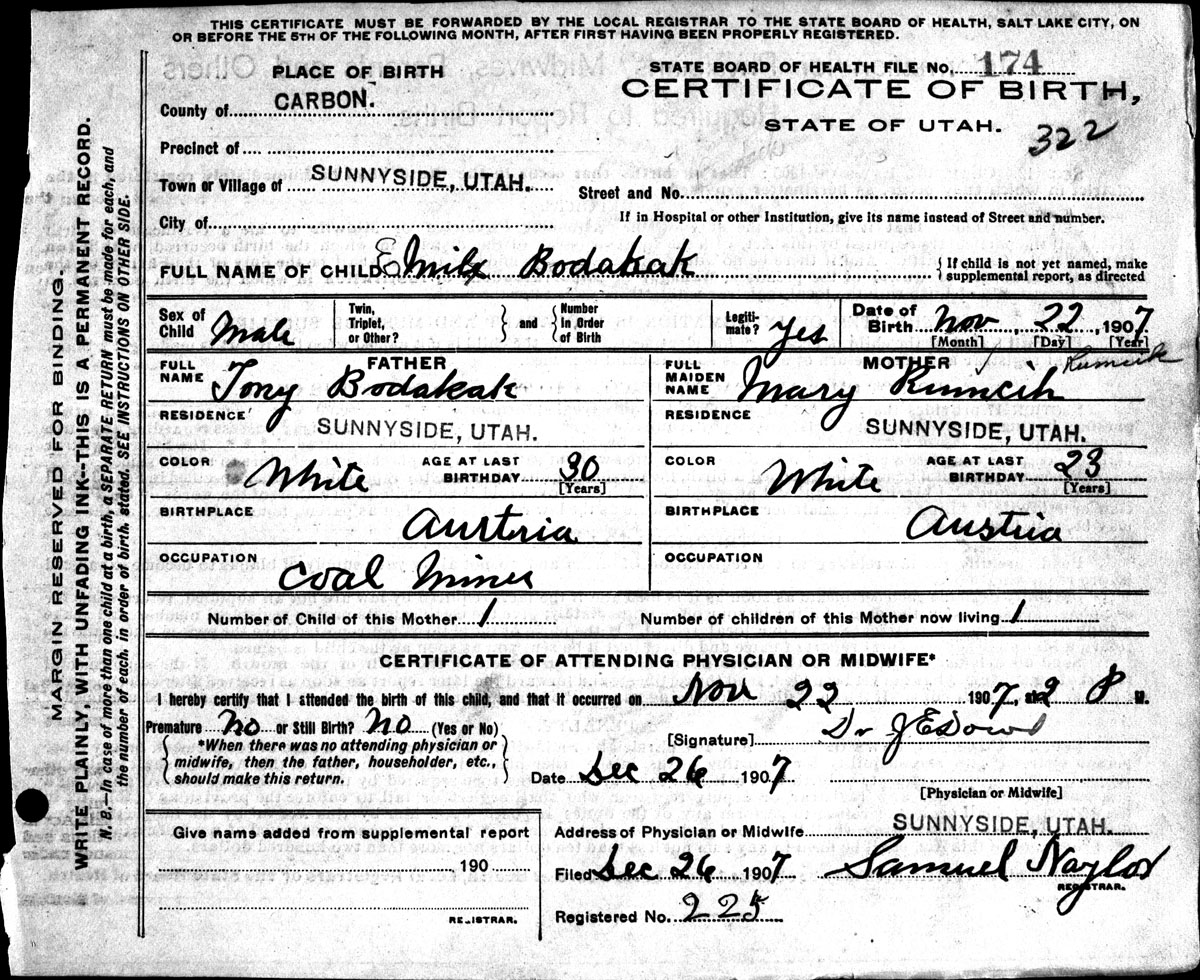 THIS CERTIFICATE MUST BE FORWARDED BY THE LOCAL REGISTRAR TO THE STATE BOARD OF HEALTH, SALT LAKE CITY, ON
OR BEFORE THE 5TH OF THE FOLLOWING MONTH, AFTER FIRST HAVING BEEN PROPERLY REGISTERED.
MARGIN RESERVED FOR BINDING.
WRITE PLAINLY, WITH UNFADING INK--THIS IS A PERMANENT RECORD.
N. B.--In case of more than one child at a birth, a SEPARATE RETURN must be made for each, and
the number of each, in order of birth, stated. SEE INSTRUCTIONS ON OTHER SIDE.
PLACE OF BIRTH
County of CARBON.
Precinct of
Town or Village of SUNNYSIDE, UTAH.
City of
STATE BOARD OF HEALTH FILE No. 174
CERTIFICATE OF BIRTH,
STATE OF UTAH.
322
Street and No.
If in Hospital or other Institution, give its name instead of Street and number.
FULL NAME OF CHILD Bodakak
{ If child is not yet named, make
supplemental report, as directed
Sex of Child Male
Twin, Triplet, or Other?
} and {
Number in Order of Birth
Legiti-mate? Yes
Date of Birth Nov, 22, 1907
[Month] [Day] [Year]
FATHER
FULL NAME Tony Bodakak
RESIDENCE
SUNNYSIDE, UTAH.
COLOR White AGE AT LAST BIRTHDAY 30
[Years]
BIRTHPLACE
Austria
OCCUPATION
Coal Miner
MOTHER
FULL MAIDEN NAME Mary
RESIDENCE
SUNNYSIDE, UTAH.
COLOR White AGE AT LAST BIRTHDAY 23
[Years]
BIRTHPLACE
Austria
OCCUPATION
Number of Child of this Mother 1 Number of children of this Mother now living 1
CERTIFICATE OF ATTENDING PHYSICIAN OR MIDWIFE*
I hereby certify that I attended the birth of this child, and that it occurred on Nov 22 1907, at 2 P M.
Premature No or Still Birth? No (Yes or No)
{ *When there was no attending physician or
midwife, then the father, householder, etc.,
should make this return. }
[Signature] Dr J E Dowd
Date Dec 26 1907
[Physician or Midwife]
Give name added from supplemental report
190
REGISTRAR.
Address of Physician or Midwife SUNNYSIDE, UTAH.
Filed Dec 26 1907 Samuel Naylor
REGISTRAR.
Registered No. 225